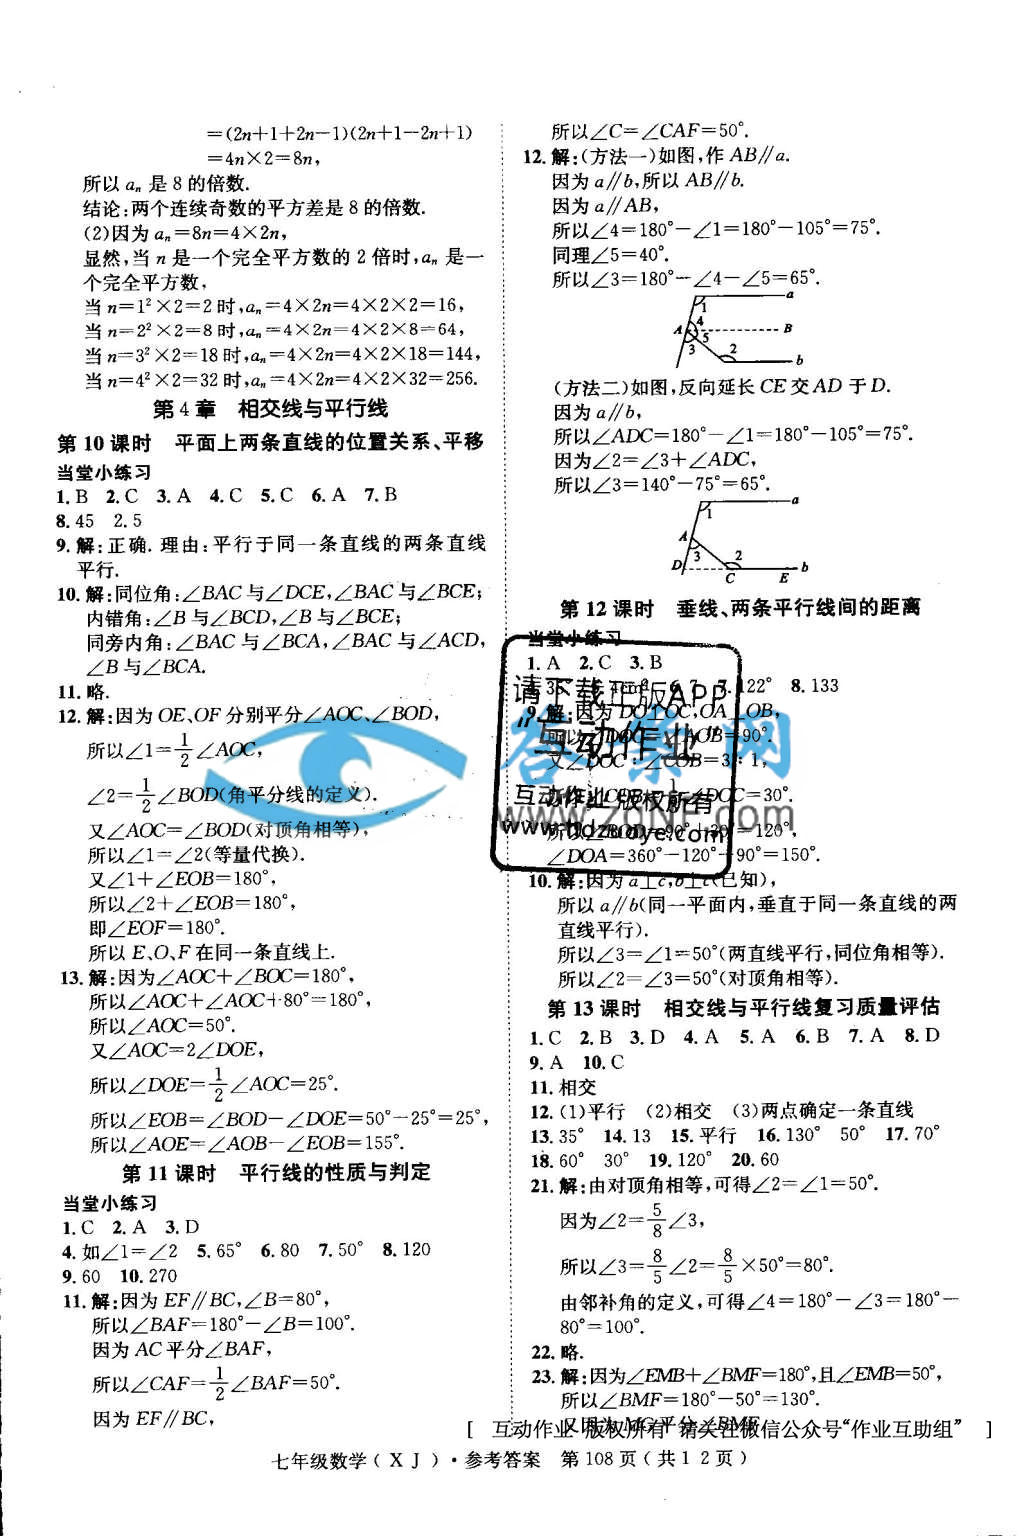 =(2n+1+2n-1)(2n+1-2n+1)
=4n×2=8n,
所以 aₙ 是 8 的倍数.
结论:两个连续奇数的平方差是 8 的倍数.
(2)因为 aₙ=8n=4×2n,
显然,当 n 是一个完全平方数的 2 倍时,aₙ 是一
个完全平方数,
当 n=1²×2=2 时,aₙ=4×2n=4×2×2=16,
当 n=2²×2=8 时,aₙ=4×2n=4×2×8=64,
当 n=3²×2=18 时,aₙ=4×2n=4×2×18=144,
当 n=4²×2=32 时,aₙ=4×2n=4×2×32=256.
第 4 章 相交线与平行线
第 10 课时 平面上两条直线的位置关系、平移
当堂小练习
1. B 2. C 3. A 4. C 5. C 6. A 7. B
8. 45 2.5
9. 解:正确. 理由:平行于同一条直线的两条直线
平行.
10. 解:同位角:∠BAC 与∠DCE,∠BAC 与∠BCE;
内错角:∠B 与∠BCD,∠B 与∠BCE;
同旁内角:∠BAC 与∠BCA,∠BAC 与∠ACD,
∠B 与∠BCA.
11. 略.
12. 解:因为 OE、OF 分别平分∠AOC、∠BOD,
所以∠1=1/2∠AOC,
∠2=1/2∠BOD(角平分线的定义).
又∠AOC=∠BOD(对顶角相等),
所以∠1=∠2(等量代换).
又∠1+∠EOB=180°,
所以∠2+∠EOB=180°,
即∠EOF=180°.
所以 E、O、F 在同一条直线上.
13. 解:因为∠AOC+∠BOC=180°,
所以∠AOC+∠AOC+80°=180°,
所以∠AOC=50°.
又∠AOC=2∠DOE,
所以∠DOE=1/2∠AOC=25°.
所以∠EOB=∠BOD-∠DOE=50°-25°=25°,
所以∠AOE=∠AOB-∠EOB=155°.
第 11 课时 平行线的性质与判定
当堂小练习
1. C 2. A 3. D
4. 如∠1=∠2 5. 65° 6. 80 7. 50° 8. 120
9. 60 10. 270
11. 解:因为 EF∥BC,∠B=80°,
所以∠BAF=180°-∠B=100°.
因为 AC 平分∠BAF,
所以∠CAF=1/2∠BAF=50°.
因为 EF∥BC,
所以∠C=∠CAF=50°.
12. 解:(方法一)如图,作 AB∥a.
因为 a∥b,所以 AB∥b.
因为 a∥AB,
所以∠4=180°-∠1=180°-105°=75°.
同理∠5=40°.
所以∠3=180°-∠4-∠5=65°.
a
1
4
A B
5
3 2
b
(方法二)如图,反向延长 CE 交 AD 于 D.
因为 a∥b,
所以∠ADC=180°-∠1=180°-105°=75°.
因为∠2=∠3+∠ADC,
所以∠3=140°-75°=65°.
a
1
A
3 2
D b
C E
第 12 课时 垂线、两条平行线间的距离
当堂小练习
1. A 2. C 3. B
7. 122° 8. 133
9. 解:因为 DO⊥OC,OA⊥OB,
所以∠DOC=∠AOB=90°.
又∠DOC:∠COB=3:1,
∠DOC=30°.
所以∠BOD=90°+30°=120°,
∠DOA=360°-120°-90°=150°.
10. 解:因为 a⊥c,b⊥c(已知),
所以 a∥b(同一平面内,垂直于同一条直线的两
直线平行).
所以∠3=∠1=50°(两直线平行,同位角相等).
所以∠2=∠3=50°(对顶角相等).
第 13 课时 相交线与平行线复习质量评估
1. C 2. B 3. D 4. A 5. A 6. B 7. A 8. D
9. A 10. C
11. 相交
12. (1)平行 (2)相交 (3)两点确定一条直线
13. 35° 14. 13 15. 平行 16. 130° 50° 17. 70°
18. 60° 30° 19. 120° 20. 60
21. 解:由对顶角相等,可得∠2=∠1=50°.
因为∠2=5/8∠3,
所以∠3=8/5∠2=8/5×50°=80°.
由邻补角的定义,可得∠4=180°-∠3=180°-
80°=100°.
22. 略.
23. 解:因为∠EMB+∠BMF=180°,且∠EMB=50°,
所以∠BMF=180°-50°=130°.
又因为 MG 平分∠BMF
请下载正版APP
"互动作业"
互动作业 版权所有
www.hdzuoye.com
答案网
[ 互动作业 版权所有 请关注微信公众号"作业互助组" ]
七年级数学(XJ)·参考答案 第 108 页(共 1 2 页)